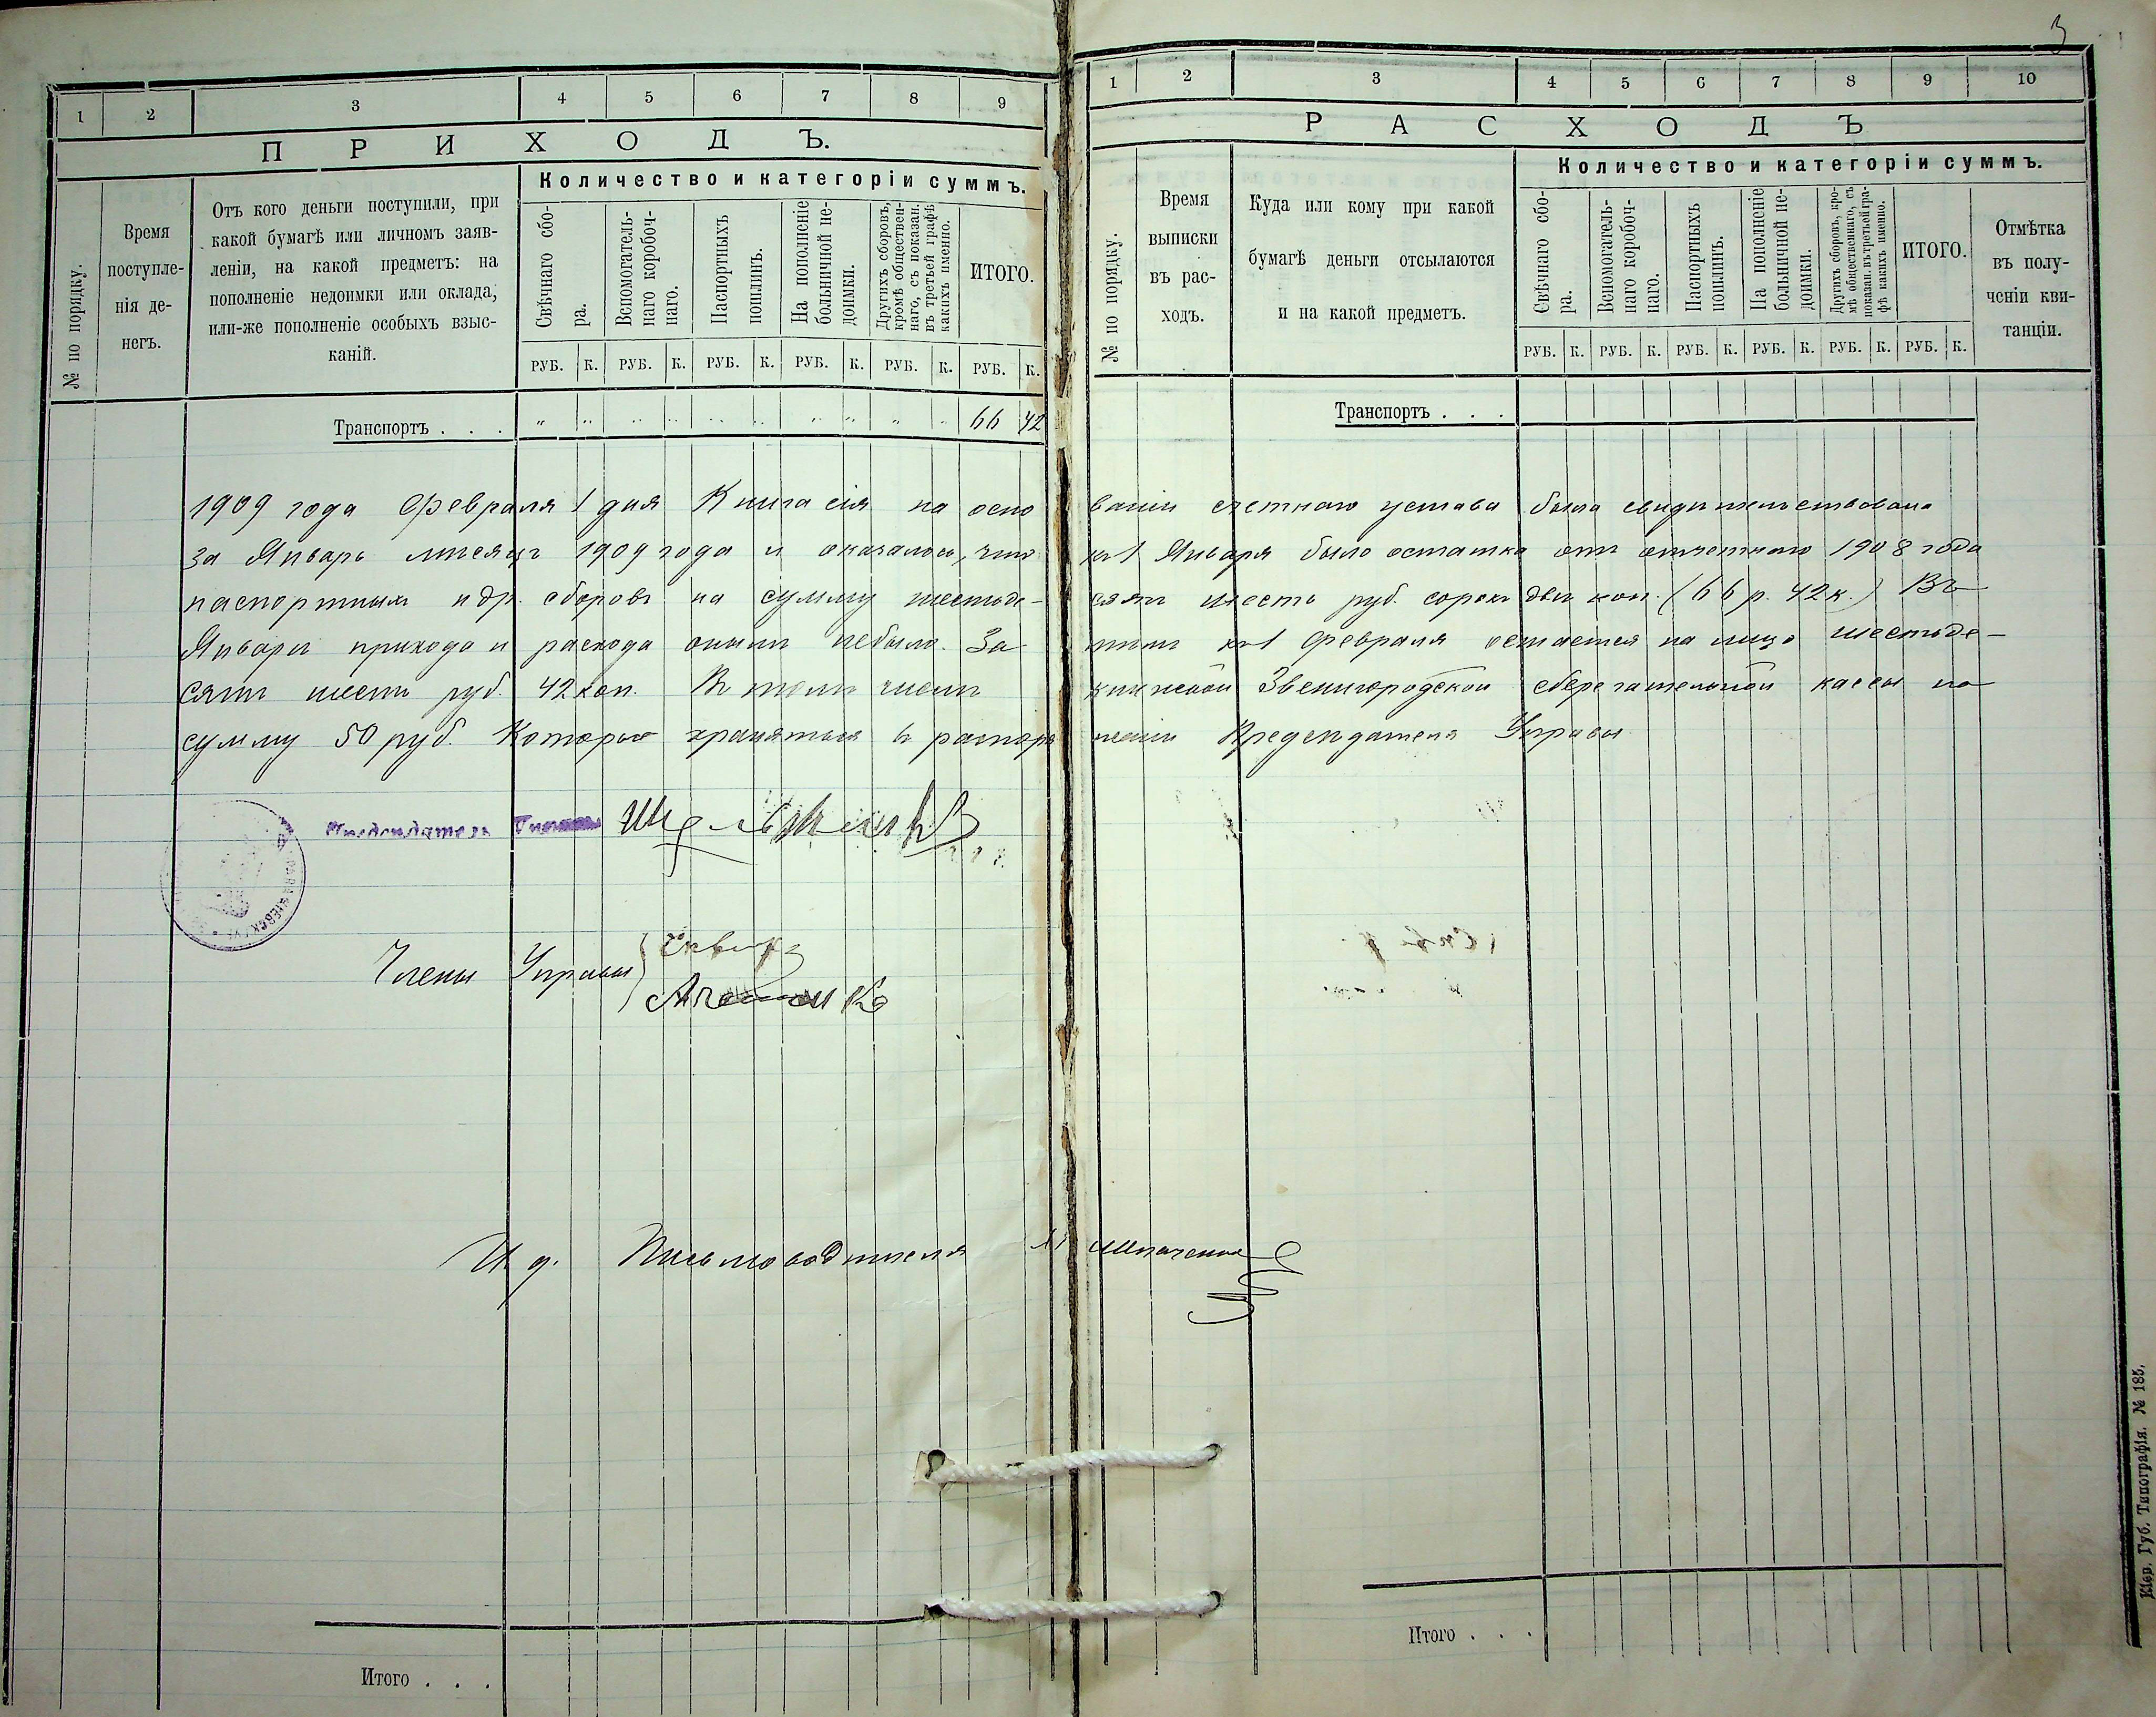 3
1 2 3 4 5 6 7 8 9
ПРИХОДЪ.
№ по порядку.
Время
поступле-
нія де-
негъ.
Отъ кого деньги поступили, при
какой бумагѣ или личномъ заяв-
леніи, на какой предметъ: на
пополненіе недоимки или оклада,
или-же пополненіе особыхъ взыс-
каній.
Количество и категоріи суммъ.
Свѣчнаго сбо-
ра.
Вспомогатель-
наго коробоч-
наго.
Паспортныхъ
пошлинъ.
На пополненіе
больничной не-
доимки.
Другихъ сборовъ,
кромѣ обществен-
наго, съ показан.
въ третьей графѣ
какихъ именно.
ИТОГО.
РУБ. К. РУБ. К. РУБ. К. РУБ. К. РУБ. К. РУБ. К.
Транспортъ . . . „ „ „ „ „ „ „ „ „ „ 66 42
1 2 3 4 5 6 7 8 9 10
РАСХОДЪ
№ по порядку.
Время
выписки
въ рас-
ходъ.
Куда или кому при какой
бумагѣ деньги отсылаются
и на какой предметъ.
Количество и категоріи суммъ.
Свѣчнаго сбо-
ра.
Вспомогатель-
наго коробоч-
наго.
Паспортныхъ
пошлинъ.
На пополненіе
больничной не-
доимки.
Другихъ сборовъ, кро-
мѣ общественнаго, съ
показан. въ третьей гра-
фѣ какихъ именно.
ИТОГО.
Отмѣтка
въ полу-
ченіи кви-
танціи.
РУБ. К. РУБ. К. РУБ. К. РУБ. К. РУБ. К. РУБ. К.
Транспортъ . . .
1909 года Февраля 1 дня Книга сія на основаніи счетнаго устава была свидѣтельствована
за Январь мѣсяцъ 1909 года и оказалось, что къ 1 Января было остатка отъ отчетнаго 1908 года
паспортныхъ и др. сборовъ на сумму шестьде-сятъ шесть руб. сорокъ двѣ коп. (66 р. 42 к.) Въ
Январѣ прихода и расхода онымъ небыло. Затѣмъ къ 1 Февраля остается на лицо шестьде-
сятъ шесть руб. 42 коп. Въ томъ числѣ книжкой Звенигородской сберегательной кассы на
сумму 50 руб. Которые хранятся въ распоряженіи Предсѣдателя Управы
Предсѣдатель Управы
Члены Управы
И. д. Письмоводителя
Итого . . .
Итого . . .
Кіев. Губ. Типографія. № 185.